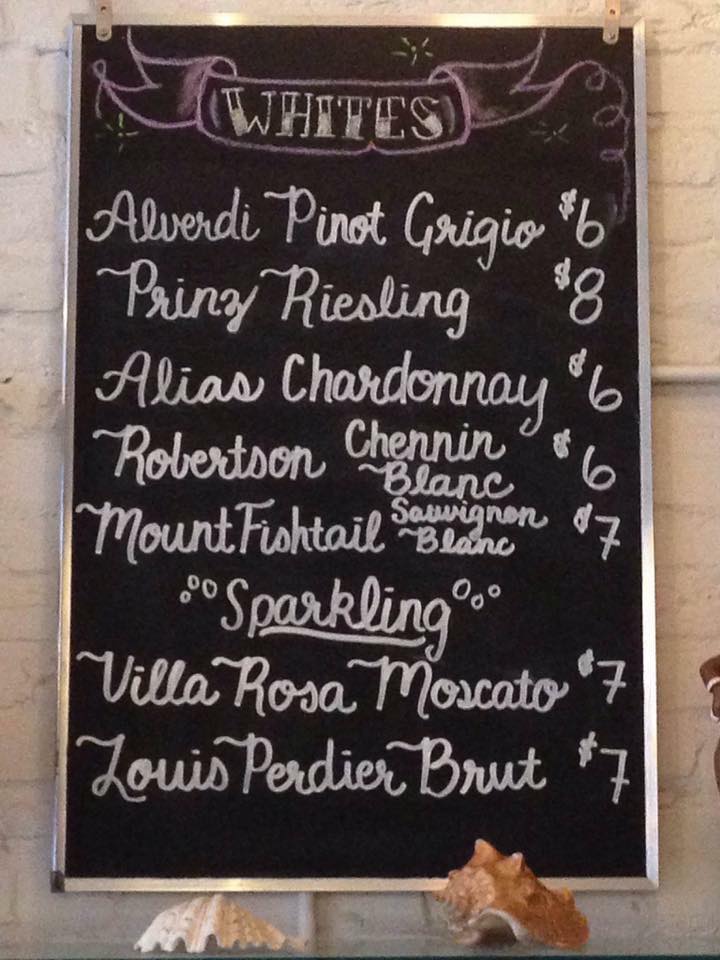 WHITES
Alverdi Pinot Grigio $6
Prinz Riesling $8
Alias Chardonnay $6
Robertson Chennin Blanc $6
Mount Fishtail Sauvignon Blanc $7
Sparkling
Villa Rosa Moscato $7
Louis Perdier Brut $7